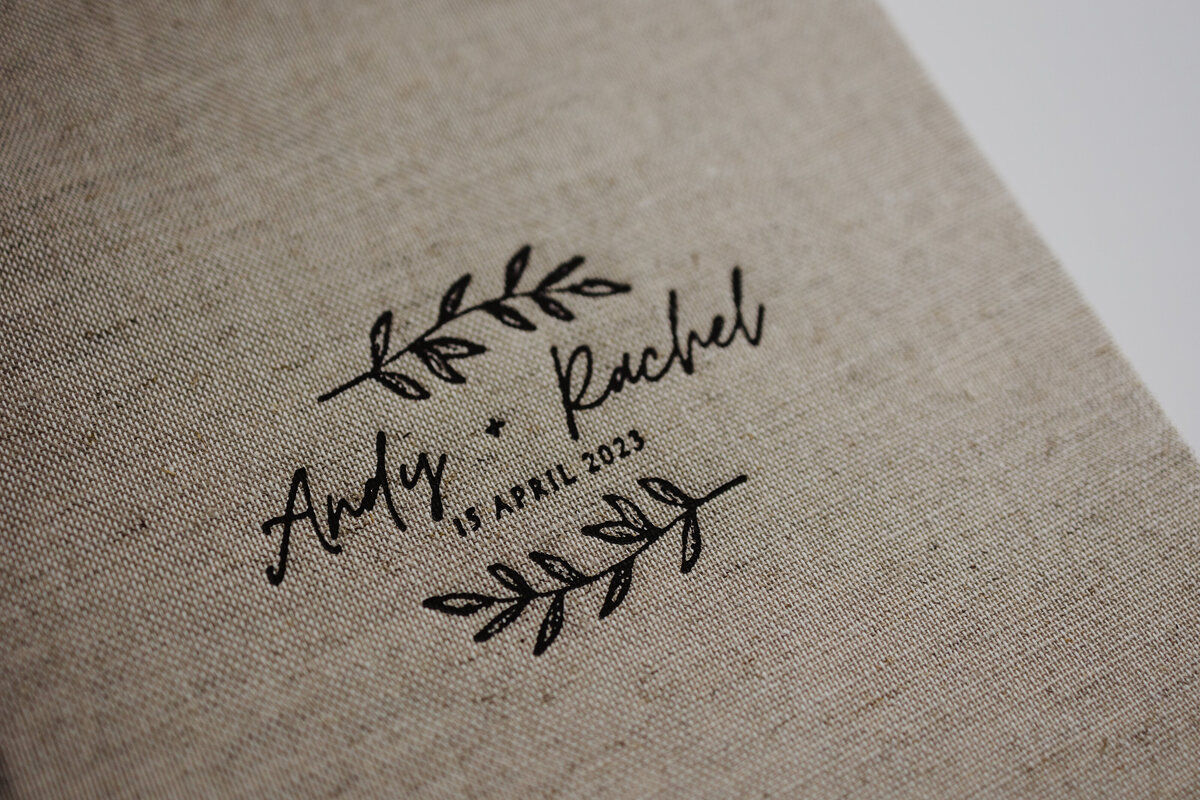 Andy + Rachel
15 APRIL 2023